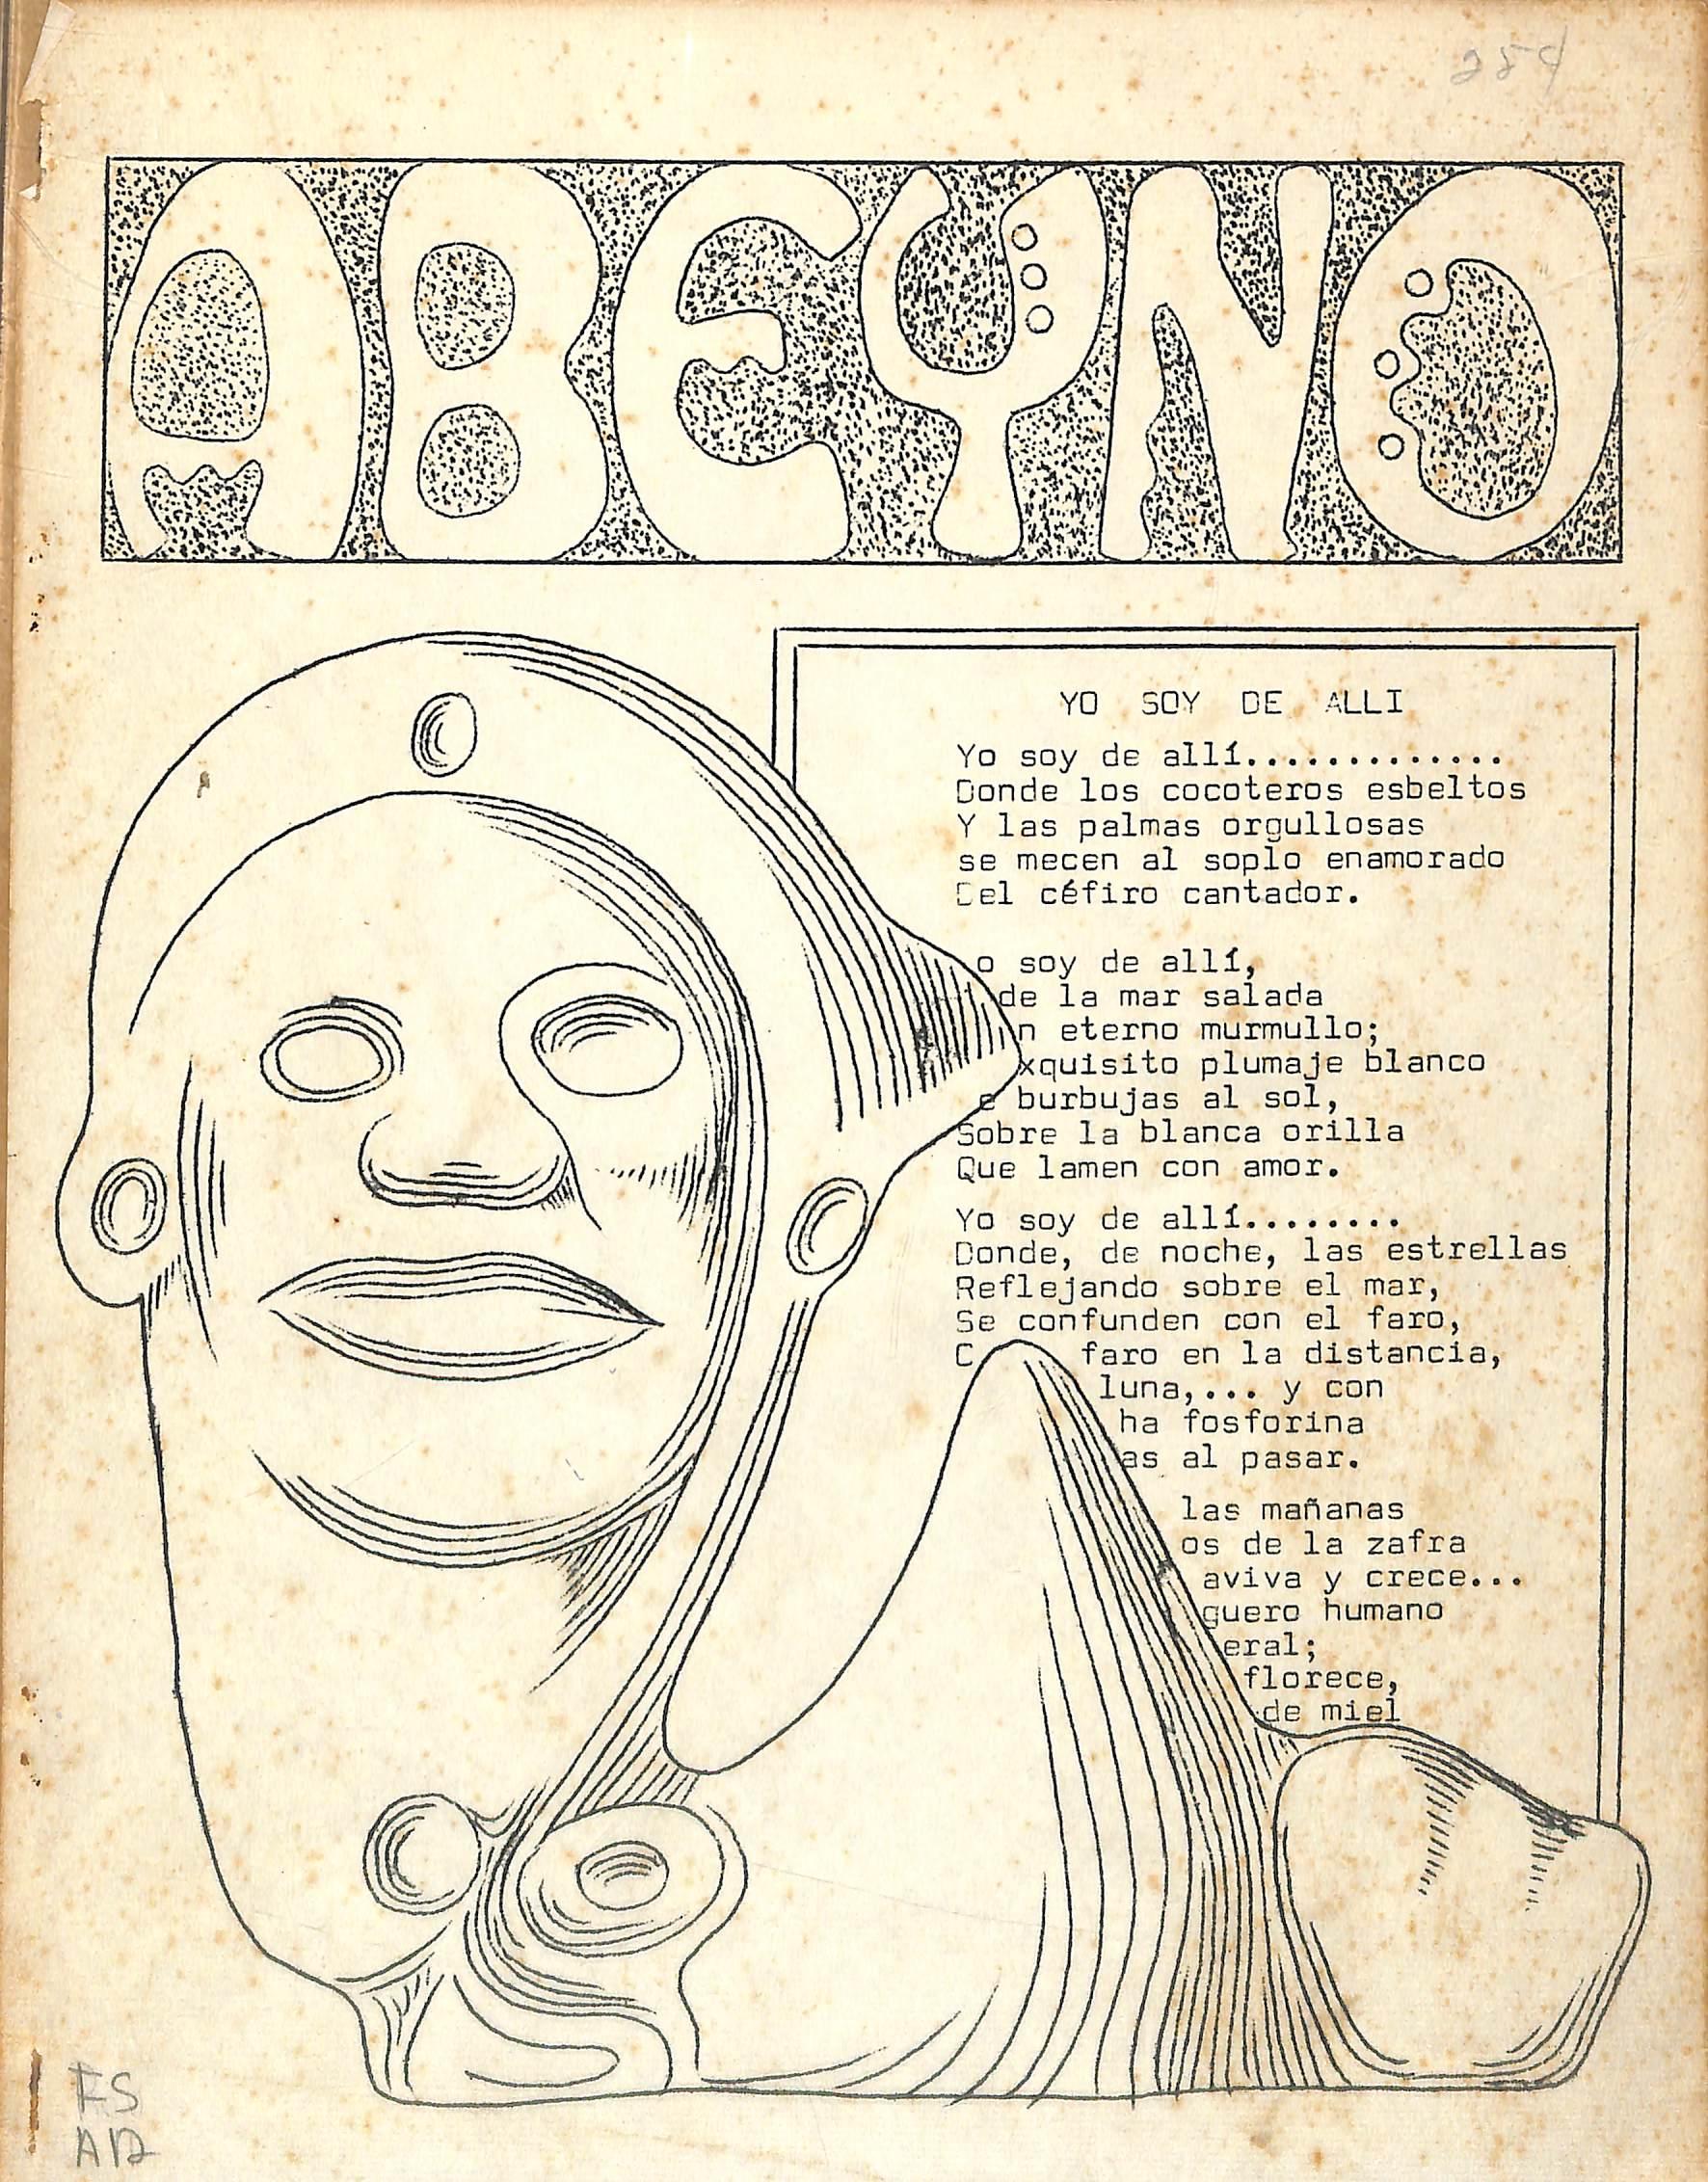 254
ABEYNO
YO SOY DE ALLI
Yo soy de allí..............
Donde los cocoteros esbeltos
Y las palmas orgullosas
se mecen al soplo enamorado
Del céfiro cantador.
o soy de allí,
de la mar salada
n eterno murmullo;
xquisito plumaje blanco
e burbujas al sol,
Sobre la blanca orilla
Que lamen con amor.
Yo soy de allí........
Donde, de noche, las estrellas
Reflejando sobre el mar,
Se confunden con el faro,
C faro en la distancia,
luna,... y con
ha fosforina
as al pasar.
las mañanas
os de la zafra
aviva y crece...
guero humano
eral;
florece,
de miel
FS